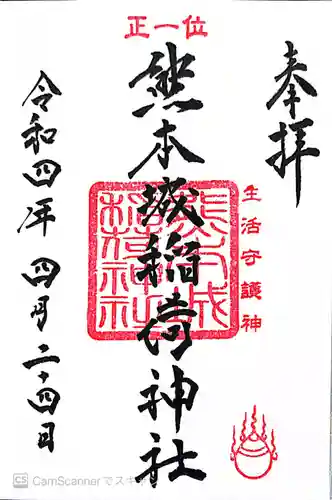 正一位
奉拝
熊本城稲荷神社
熊本城稲荷神社
生活守護神
令和四年 四月二十四日
CS CamScannerでスキャン